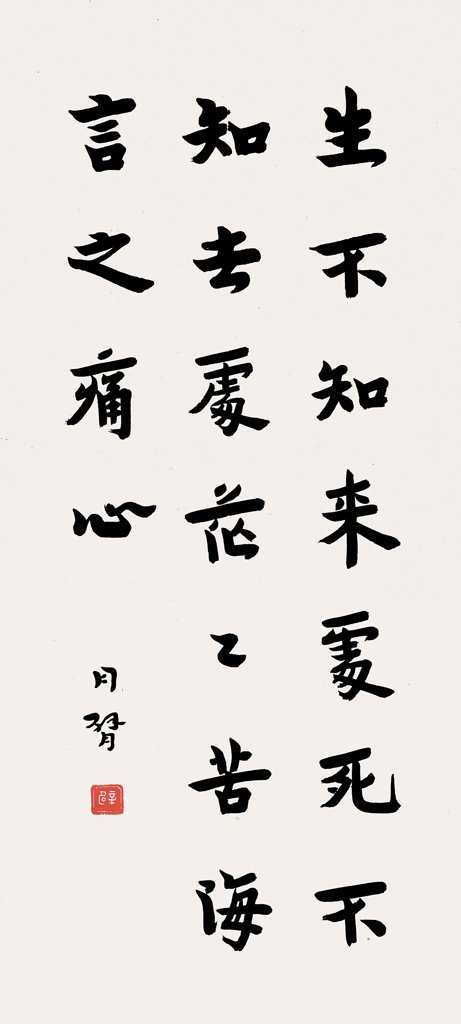 生不知来處死不
知去處茫〻苦海
言之痛心
月臂